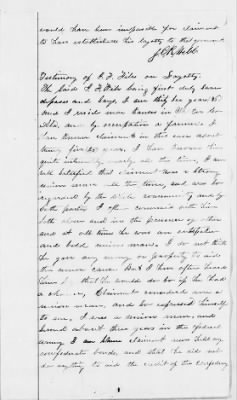 would have been impossible for claimant
to have established his loyalty to that government
J.C.R. Hill
Testimony of A. F. Files on Loyalty.
The said A F Files being first duly sworn
deposes and says, I am thirty six years old
and I reside near Kansas in Walker Co
Ala, am by occupation a farmer. I
have known claimant in this case about
twenty five years. I have known him
quite intimately nearly all the time, I am
well satisfied that claimant was a strong
union man all the time, and was so
regarded by the whole community and by
both parties. I often conversed with him
both alone and in the presence of others
and at all times he was an outspoken
and bold union man. I do not think
he gave any money or property to aid
the union cause. But I have often heard
him that he would do so if he had
a chance. Claimant considered me a
union man, and he expressed himself
to me. I was a union man, and
served about three years in the federal
army. I am sure claimant never held any
confederate bonds, and that he did not
do anything to aid the credit of the confederacy